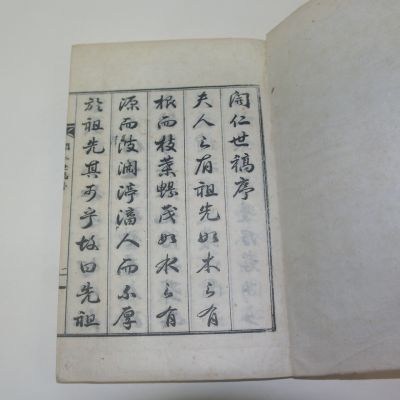 開仁世稿序
夫人之有祖先如木之有
根而枝葉茂如水之有
源而波瀾渟滀人而不厚
於祖先其可乎故曰先祖